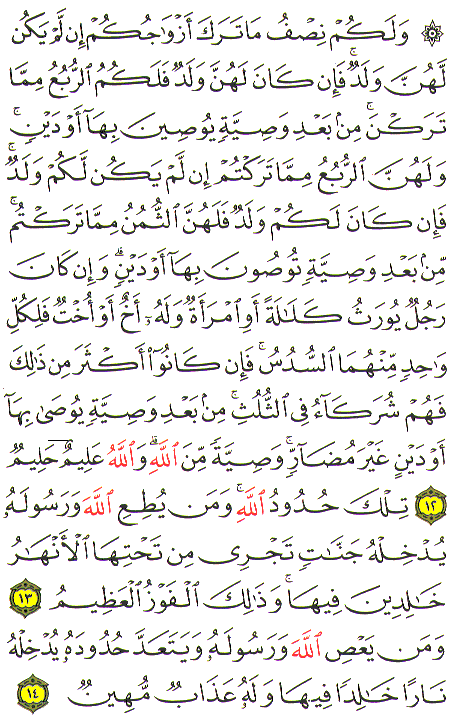 ۞ وَلَكُمْ نِصْفُ مَا تَرَكَ أَزْوَٰجُكُمْ إِن لَّمْ يَكُن
لَّهُنَّ وَلَدٌ ۚ فَإِن كَانَ لَهُنَّ وَلَدٌ فَلَكُمُ ٱلرُّبُعُ مِمَّا
تَرَكْنَ ۚ مِنۢ بَعْدِ وَصِيَّةٍ يُوصِينَ بِهَآ أَوْ دَيْنٍ ۚ
وَلَهُنَّ ٱلرُّبُعُ مِمَّا تَرَكْتُمْ إِن لَّمْ يَكُن لَّكُمْ وَلَدٌ ۚ
فَإِن كَانَ لَكُمْ وَلَدٌ فَلَهُنَّ ٱلثُّمُنُ مِمَّا تَرَكْتُم ۚ
مِّنۢ بَعْدِ وَصِيَّةٍ تُوصُونَ بِهَآ أَوْ دَيْنٍ ۗ وَإِن كَانَ
رَجُلٌ يُورَثُ كَلَٰلَةً أَوِ ٱمْرَأَةٌ وَلَهُۥٓ أَخٌ أَوْ أُخْتٌ فَلِكُلِّ
وَٰحِدٍ مِّنْهُمَا ٱلسُّدُسُ ۚ فَإِن كَانُوٓا۟ أَكْثَرَ مِن ذَٰلِكَ
فَهُمْ شُرَكَآءُ فِى ٱلثُّلُثِ ۚ مِنۢ بَعْدِ وَصِيَّةٍ يُوصَىٰ بِهَآ
أَوْ دَيْنٍ غَيْرَ مُضَآرٍّ ۚ وَصِيَّةً مِّنَ ٱللَّهِ ۗ وَٱللَّهُ عَلِيمٌ حَلِيمٌ
١٢ تِلْكَ حُدُودُ ٱللَّهِ ۚ وَمَن يُطِعِ ٱللَّهَ وَرَسُولَهُۥ
يُدْخِلْهُ جَنَّٰتٍ تَجْرِى مِن تَحْتِهَا ٱلْأَنْهَٰرُ
خَٰلِدِينَ فِيهَا ۚ وَذَٰلِكَ ٱلْفَوْزُ ٱلْعَظِيمُ ١٣
وَمَن يَعْصِ ٱللَّهَ وَرَسُولَهُۥ وَيَتَعَدَّ حُدُودَهُۥ يُدْخِلْهُ
نَارًا خَٰلِدًا فِيهَا وَلَهُۥ عَذَابٌ مُّهِينٌ ١٤